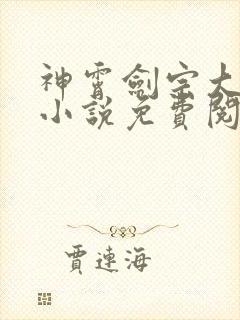 神霄劍宗大
小說免費閱
賈連海